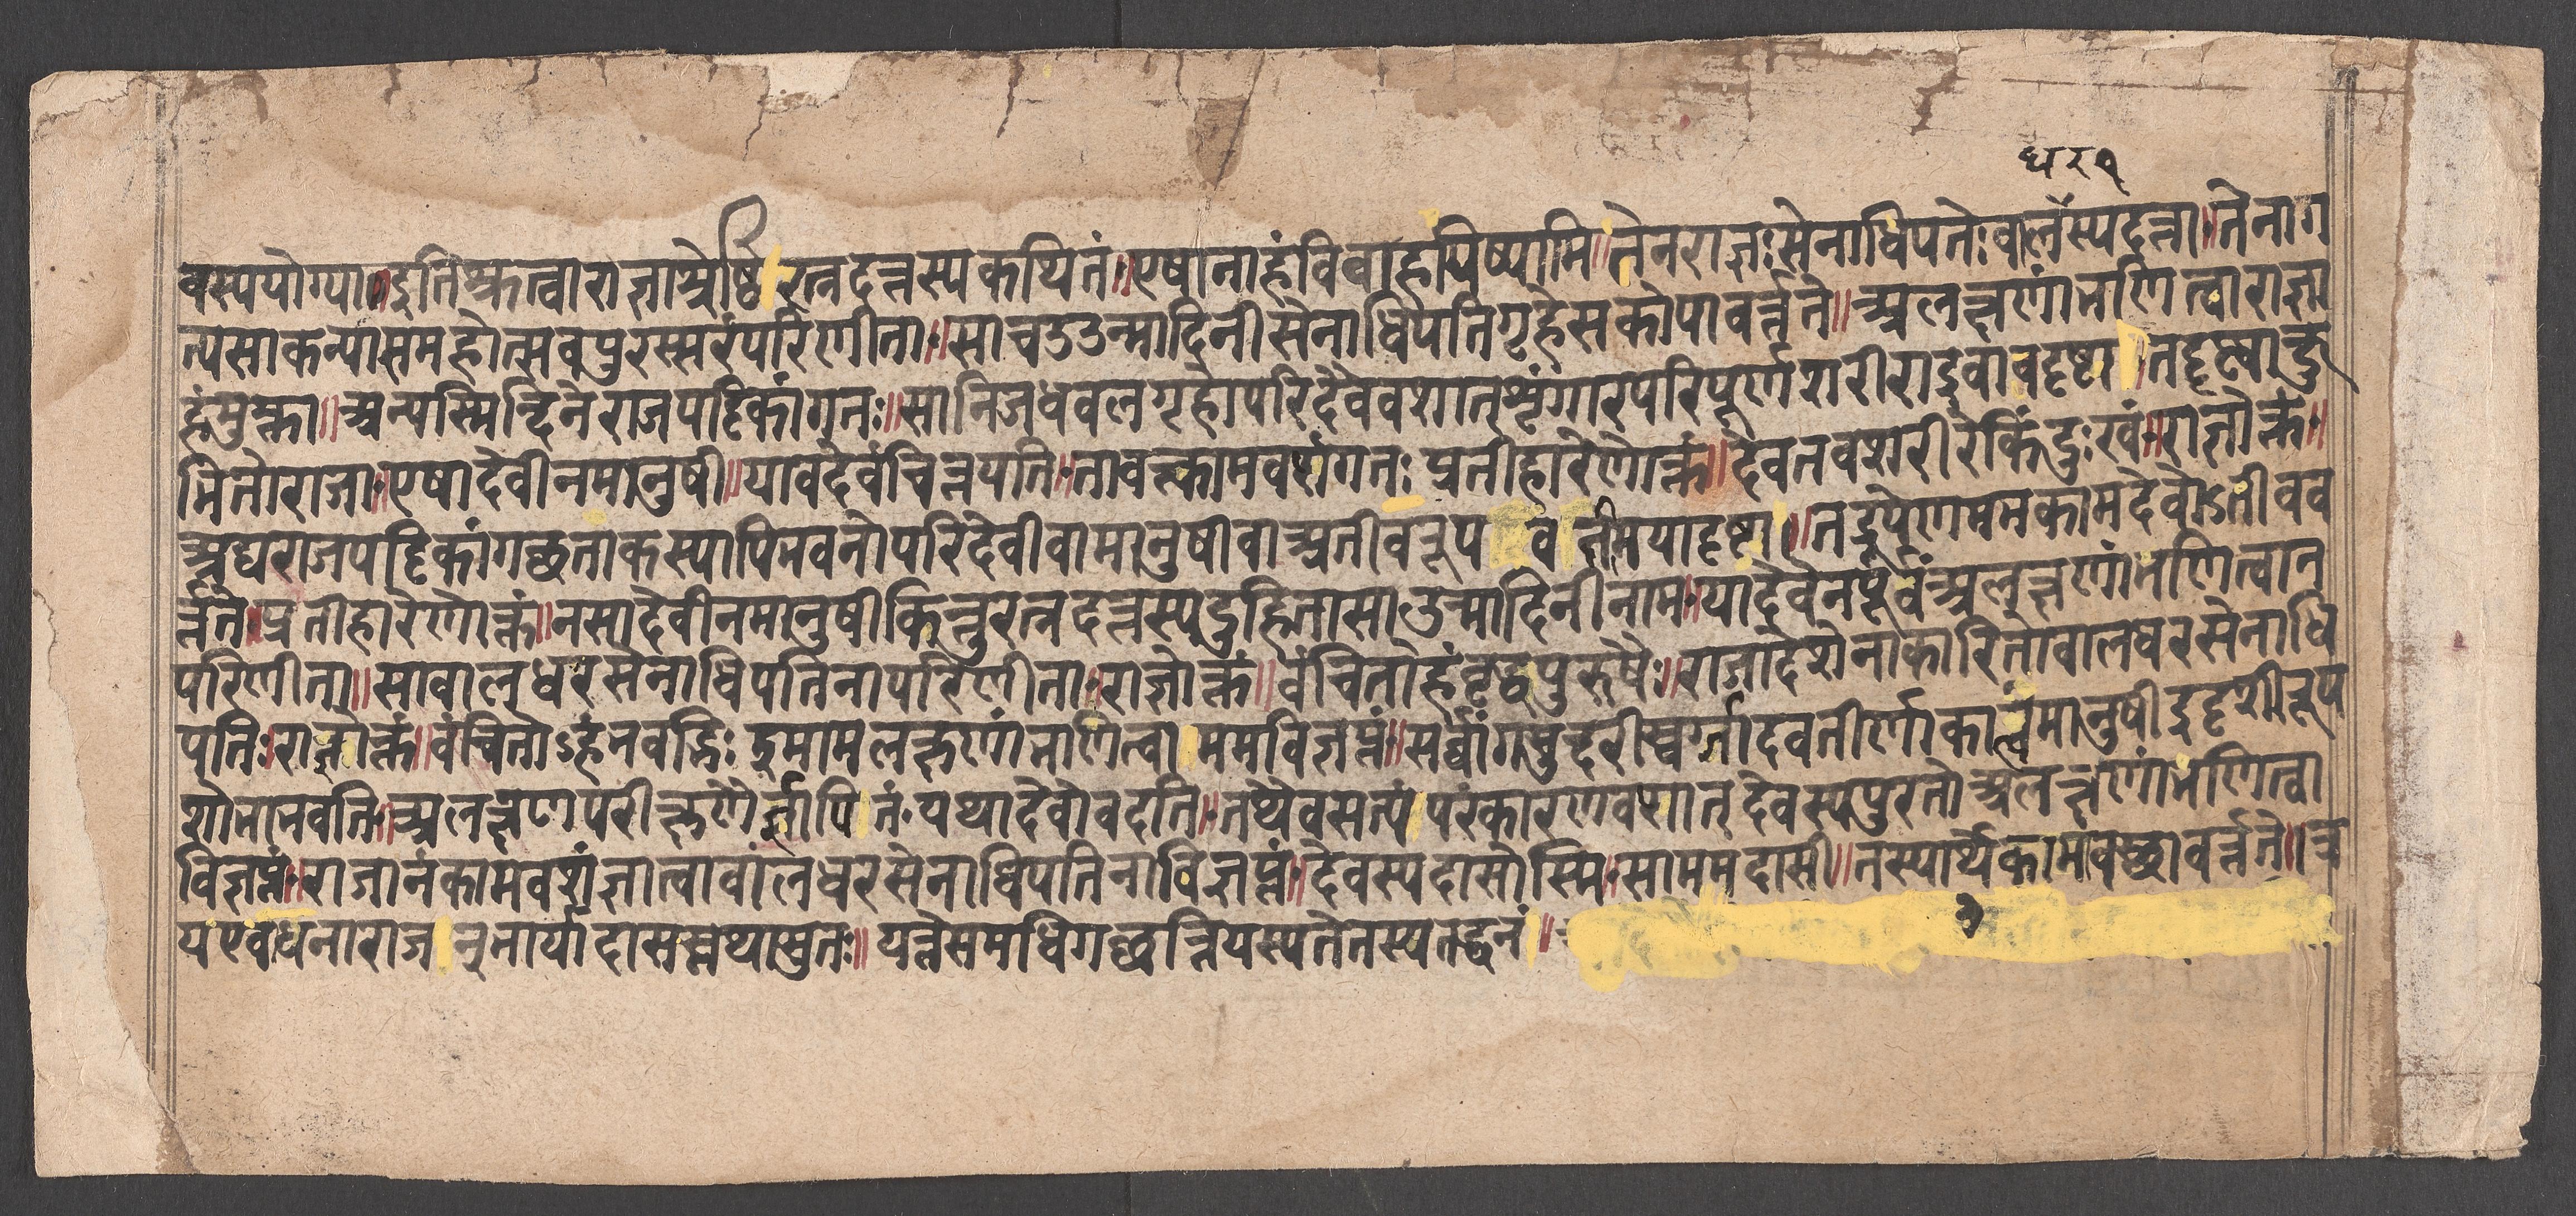 धर १
वस्ययोग्या॥इतिश्रुत्वाराज्ञाश्रेष्ठिरत्नदत्तस्यकथितं॥एषानाहंविवाहयिष्यामि॥तेनराज्ञःसेनाधिपतेःबालस्यदत्ता॥तेनाग
त्यसाकन्यासमहोत्सवपुरस्सरंपरिणीता॥साचउउन्मादिनीसेनाधिपतिगृहेसकोपावर्त्तते॥अलक्षणांभणित्वाराज्ञा
हंमुक्ता॥अन्यस्मिन्दिनेराजपट्टिकांगतः॥सानिजधवलगृहोपरिदैववशात्शृंगारपरिपूर्णशरीराइवावदृष्टा॥तदृष्ट्वाक्षु
भितोराजा॥एषादेवीनमानुषी॥यावदेवंचिन्तयति॥तावत्कामवशंगतः प्रतीहारेणोक्तं॥देवतवशरीरेकिंदुःखं॥राज्ञोक्तं॥
अद्यराजपट्टिकांगच्छताकस्यापिभवनोपरिदेवीवामानुषीवाअतीवरूपवतीमयादृष्टा॥तद्रूपेणममकामदेवोऽतीवव
र्त्तते॥प्रतीहारेणोक्तं॥नसादेवीनमानुषीकिन्तुरत्नदत्तस्यदुहितासाउन्मादिनीनाम॥यादेवेनपूर्वंअलक्षणांभणित्वान
परिणीता॥साबालधरसेनाधिपतिनापरिणीता॥राज्ञोक्तं॥वंचितोहंवृद्धपुरुषैः॥राजादेशेनाकारितोबालधरसेनाधि
पतिः॥राज्ञोक्तं॥वंचितोऽहंभवद्भिः इमामलक्षणांभणित्वाममविज्ञप्तं॥सर्वांगसुन्दरीस्वर्गादवतीर्णाकात्वंमानुषीइदृशीरूप
शोभाभवति॥अलक्षणपरीक्षणैर्ज्ञापितं॰यथादेवोवदति॥तथैवसत्यंपरंकारणवशात् देवस्यपुरतोअलक्षणांभणित्वा
विज्ञप्तं॥राजानंकामवशंज्ञात्वाबालधरसेनाधिपतिनाविज्ञप्तं॥देवस्यदासोस्मि॥साममदासी॥तस्यार्थेकामावस्छावर्त्तते॥त्र
यएवधनाराजन्भार्यादासस्तथासुतः॥ यत्तेसमधिगछन्तियस्यतेतस्यतद्धनं॥